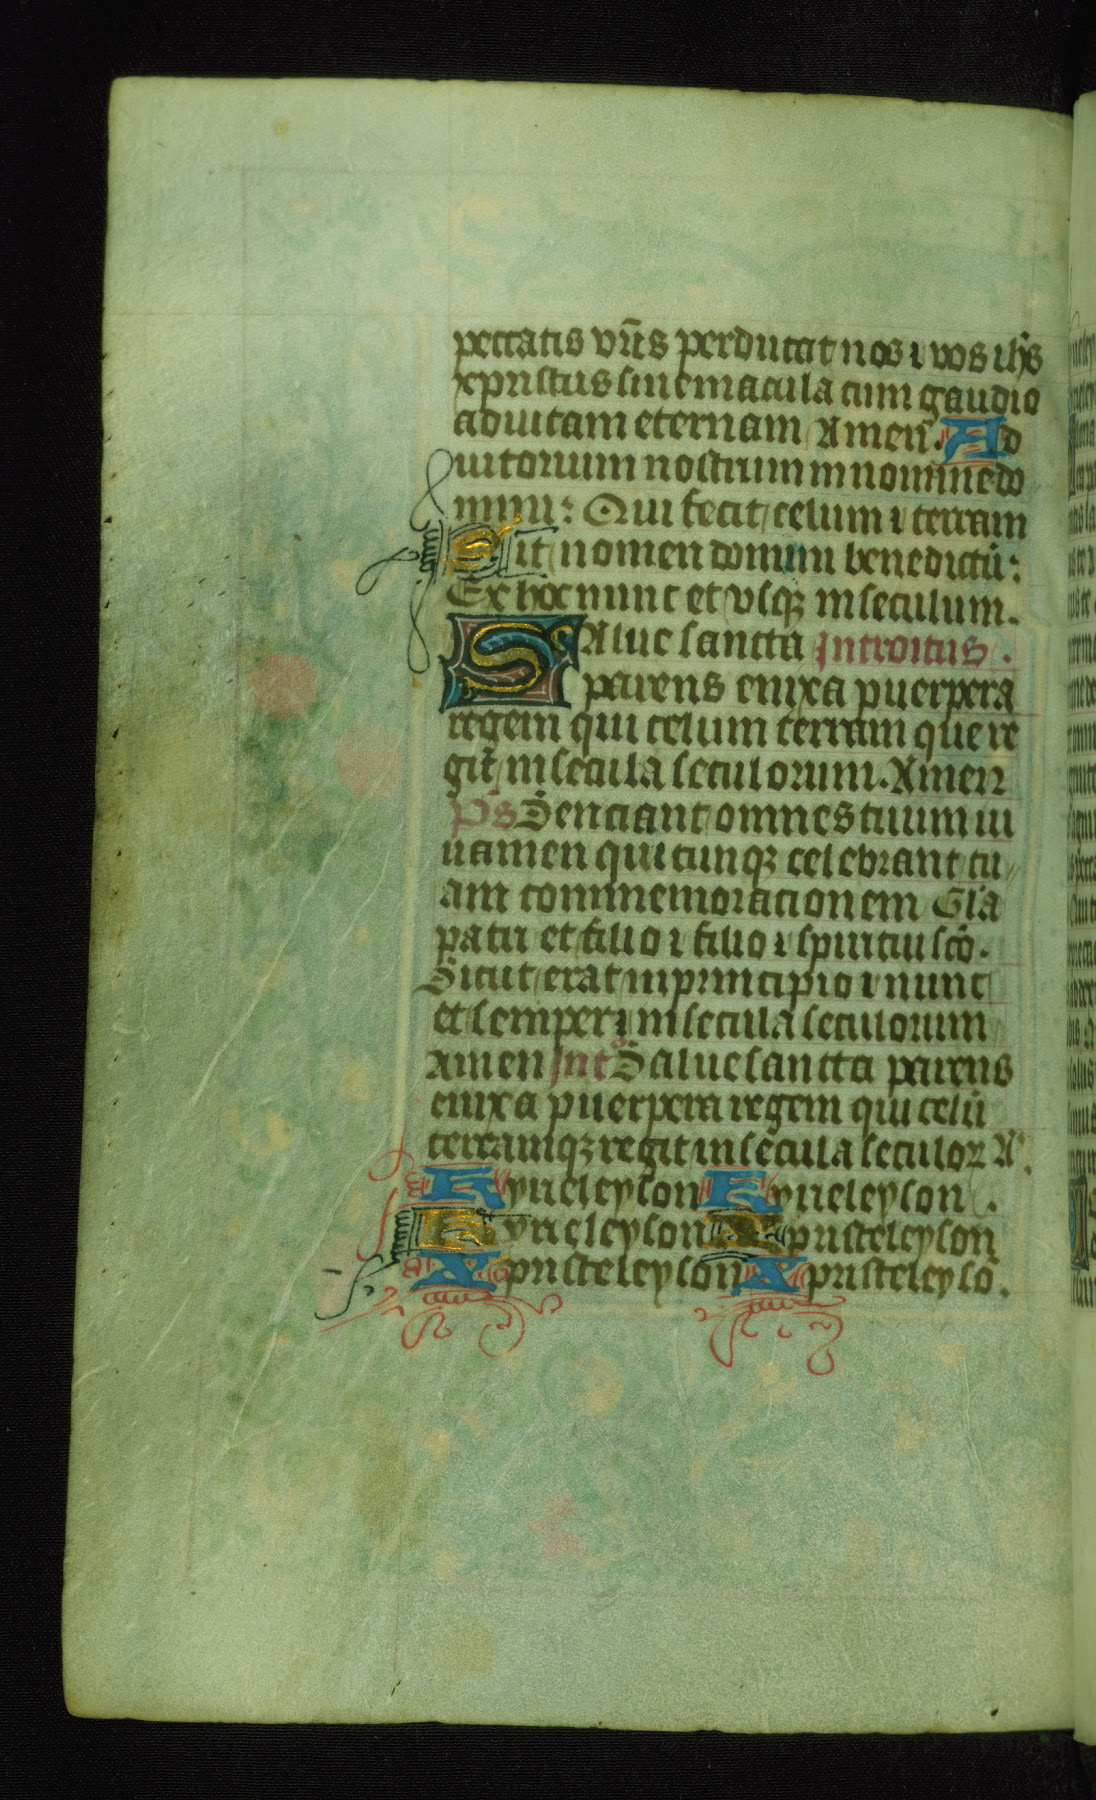 peccatis vr̄is perducat nos ⁊ vos ihs̄
xpristus sine macula cum gaudio
ad vitam eternam Amen. Ad
iutorium nostrum in nomine do
mini: Qui fecit celum ⁊ terram
Sit nomen domini benedictū:
Ex hoc nunc et vsqꝫ in seculum.
SAlue sancta Introitus.
parens enixa puerpera
regem qui celum terram que re
git in secula seculorum. Amen
Ps̄ Senciant omnes tuum iu
uamen qui cunqꝫ celebrant tu
am commemoracionem Glā
patri et filio ⁊ filio ⁊ spiritui scō.
Sicut erat in principio ⁊ nunc
et semper ⁊ in secula seculorum
Amen Int Salue sancta parens
enixa puerpera regem qui celū
terramqꝫ regit in secula seculoꝝ A.
Kyrieleyson Kyrieleyson.
Kyrieleyson Xpristeleyson
Xpristeleyson Xpristeleysō.